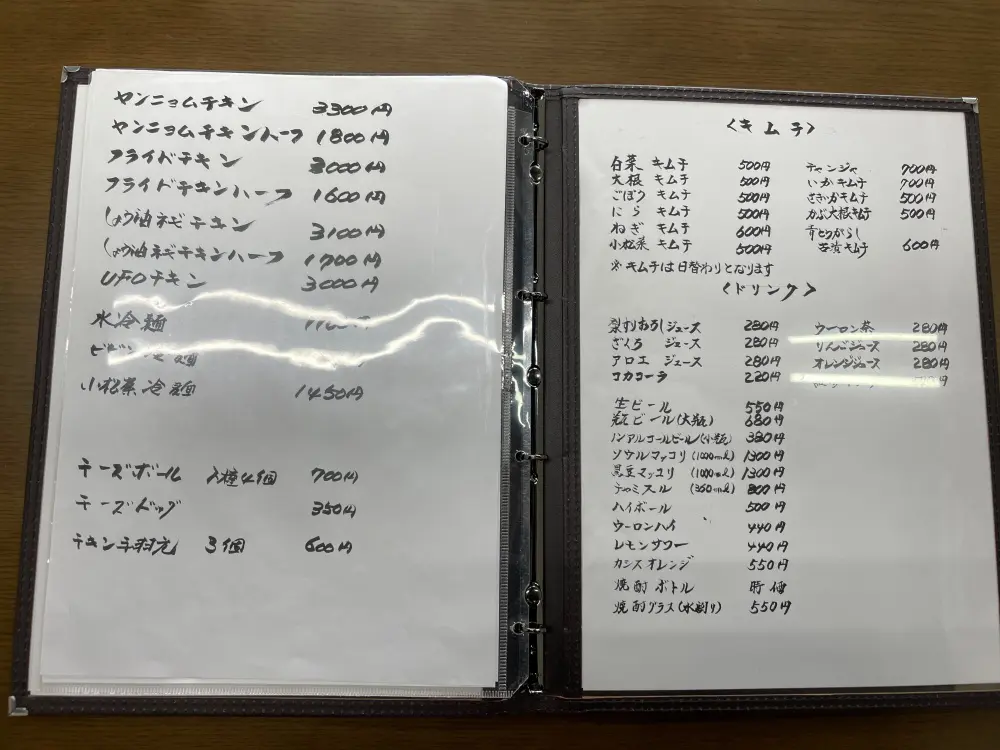 ヤンニョムチキン 3300円
ヤンニョムチキンハーフ 1800円
フライドチキン 3000円
フライドチキンハーフ 1600円
しょう油ネギチキン 3100円
しょう油ネギチキンハーフ 1700円
UFOチキン 3000円
水冷麺
ビビン
小松菜冷麺 1450円
チーズボール 2種4個 700円
チーズドッグ 350円
チキン手羽元 3個 600円
<キムチ>
白菜 キムチ 500円
大根 キムチ 500円
ごぼう キムチ 500円
にら キムチ 500円
ねぎ キムチ 600円
小松菜 キムチ 500円
チャンジャ 700円
いかキムチ 700円
さきいかキムチ 500円
かぶ大根キムチ 500円
青とうがらし
若漬キムチ 600円
※キムチは日替わりとなります
<ドリンク>
梨すりおろしジュース 280円
ざくろ ジュース 280円
アロエ ジュース 280円
コカコーラ 220円
ウーロン茶 280円
りんごジュース 280円
オレンジジュース 280円
生ビール 550円
瓶ビール(大瓶) 680円
ノンアルコールビール(小瓶) 380円
ソウルマッコリ (1000ml) 1300円
黒豆マッコリ (1000ml) 1300円
チャミスル (360ml) 800円
ハイボール 500円
ウーロンハイ 440円
レモンサワー 440円
カシスオレンジ 550円
焼酎 ボトル 時価
焼酎グラス(水割り) 550円